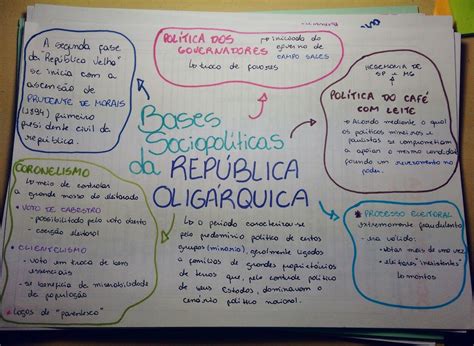 A segunda fase
da "República Velha"
se inicia com a
ascensão de
PRUDENTE DE MORAIS
(1894) primeiro
presidente civil da
república.
POLÍTICA DOS
GOVERNADORES
↳ iniciada do
governo de
CAMPO SALES
↳ troca de favores
HEGEMONIA DE
SP e MG
POLÍTICA DO CAFÉ
COM LEITE
↳ Acordo mediante o qual
os políticos mineiros e
paulistas se comprometiam
a apoiar o mesmo candidato
fazendo um revezamento no
poder.
Bases
Sociopolíticas
da REPÚBLICA
OLIGÁRQUICA
↳ o período caracteriza-se
pelo predomínio político de certos
grupos (minoria), geralmente ligados
a famílias de grandes proprietários
de terras que, pelo controle político
de seus Estados, dominavam o
cenário político nacional.
CORONELISMO
↳ meio de controlar
a grande massa do eleitorado
• VOTO DE CABRESTO
- possibilitado pelo voto aberto
- coerção eleitoral
• CLIENTELISMO
- voto em troca de bens
essenciais
- se beneficia da miserabilidade
da população
• Laços de "parentesco"
• PROCESSO ELEITORAL
extremamente fraudulento
- era válido:
votar mais de uma vez
- eleitores "inexistentes"
↳ mortos